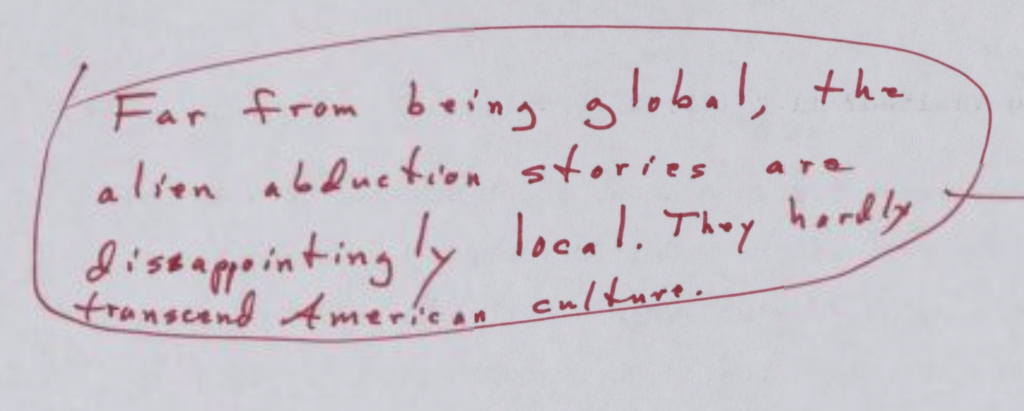 Far from being global, the
alien abduction stories are
dissappointingly local. They hardly
transcend American culture.